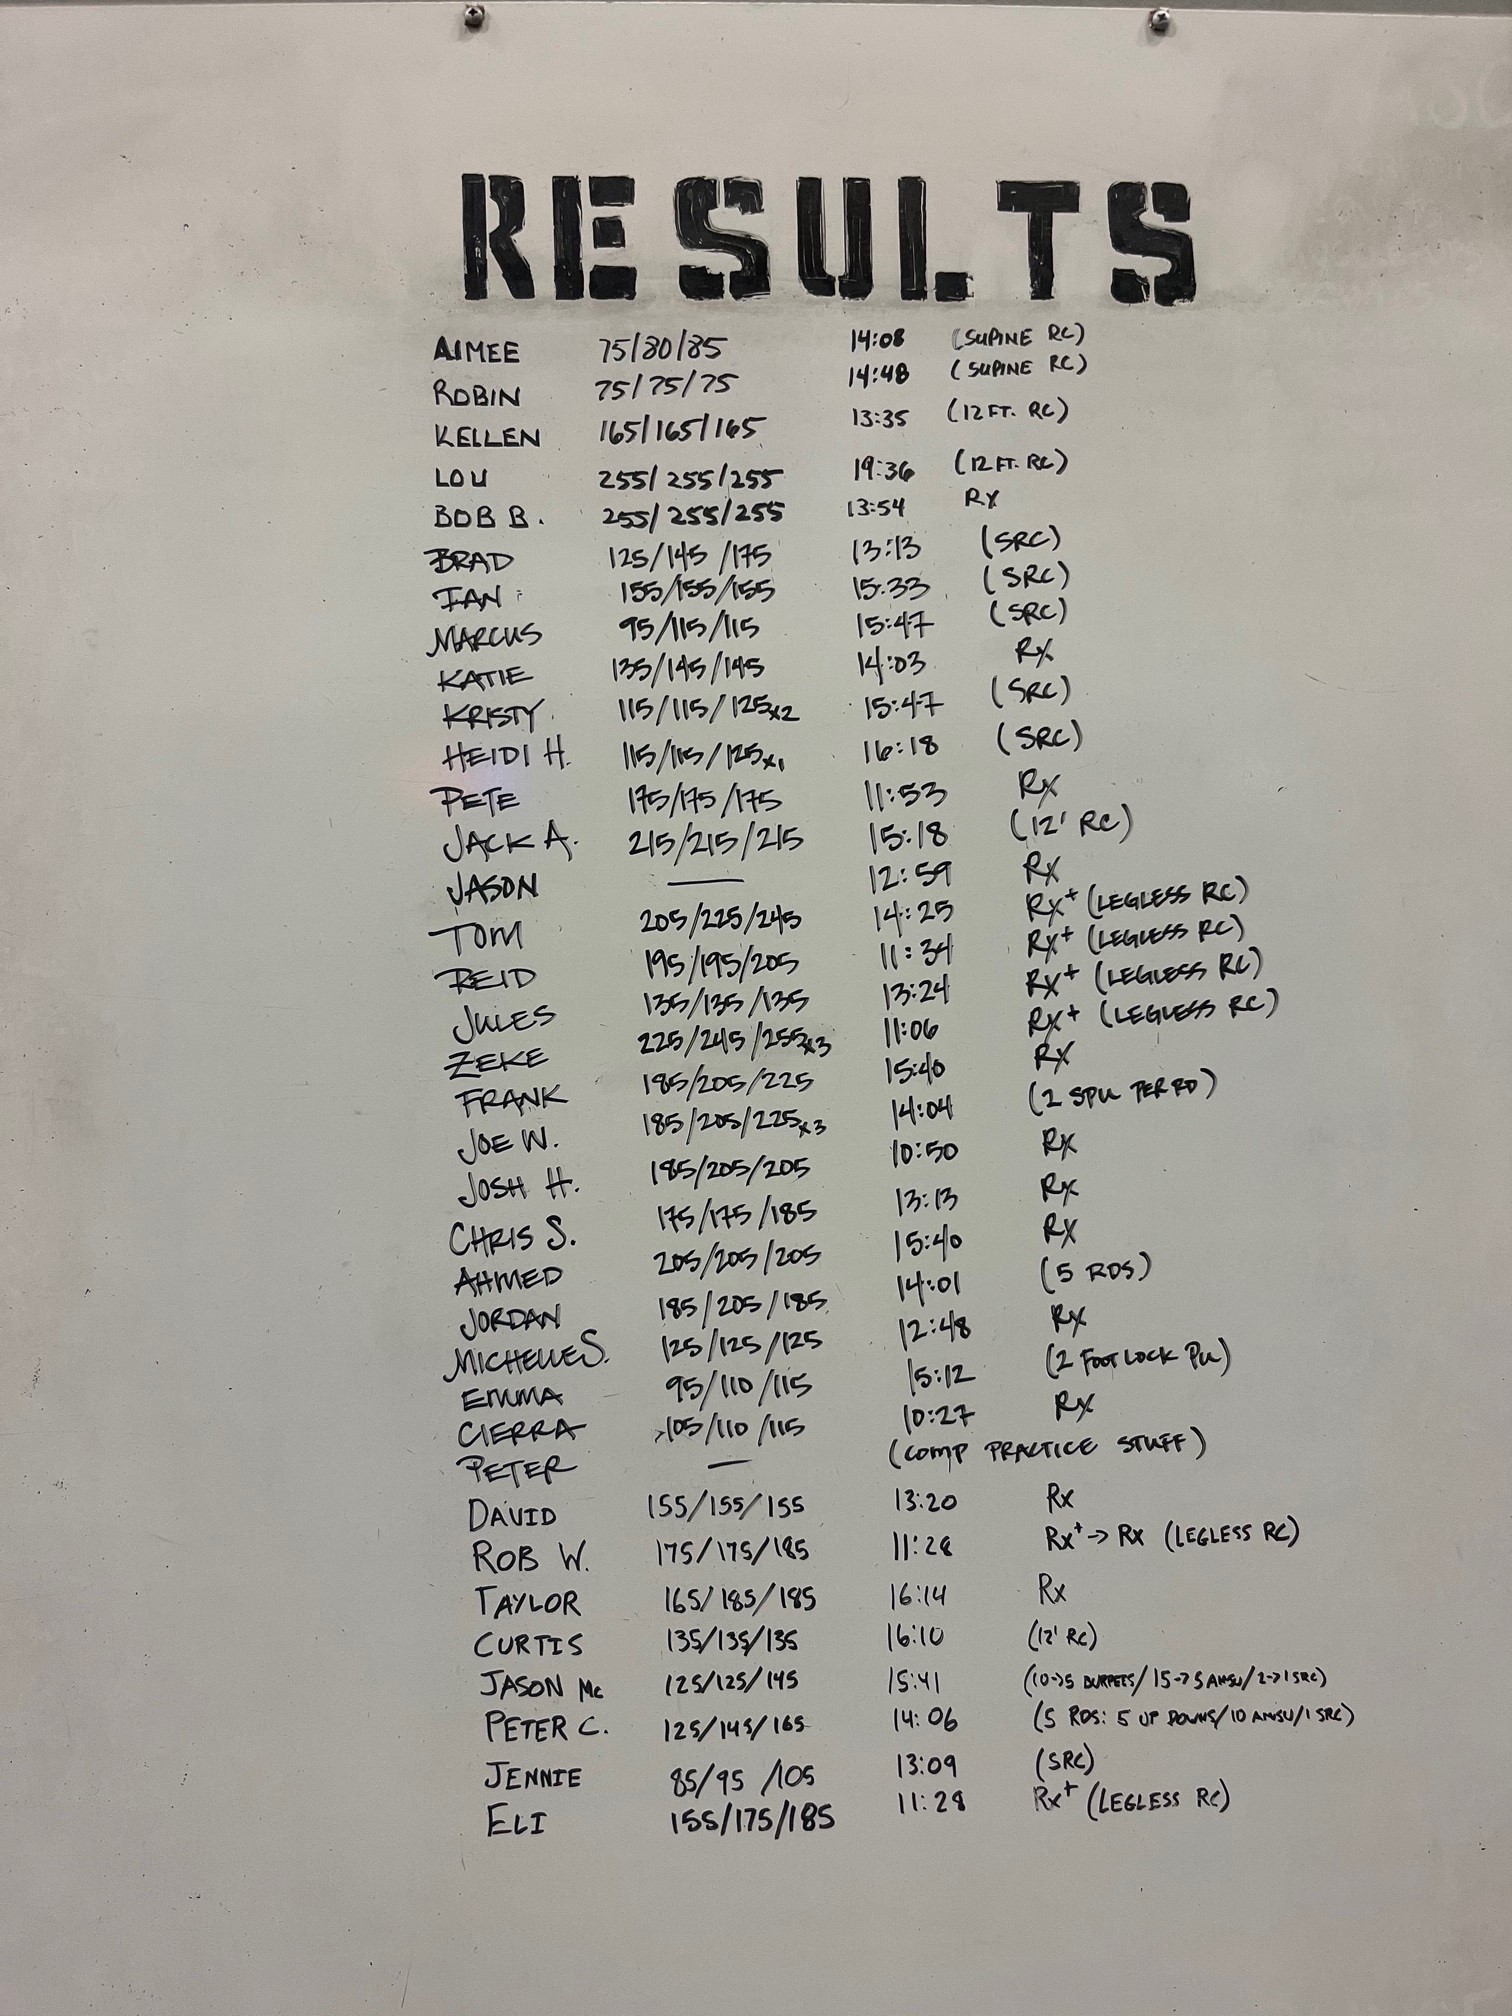 RESULTS
AIMEE 75/80/85 14:08 (SUPINE RC)
ROBIN 75/75/75 14:48 (SUPINE RC)
KELLEN 165/165/165 13:35 (12 FT. RC)
LOU 255/255/255 19:36 (12 FT. RC)
BOB B. 255/255/255 13:54 RX
BRAD 125/145/175 13:13 (SRC)
IAN 155/155/155 15:33 (SRC)
MARCUS 95/115/115 15:47 (SRC)
KATIE 135/145/145 14:03 RX
KRISTY 115/115/125x2 15:47 (SRC)
HEIDI H. 115/115/125x1 16:18 (SRC)
PETE 175/175/175 11:53 RX
JACK A. 215/215/215 15:18 (12' RC)
JASON — 12:59 RX
TOM 205/225/245 14:25 RX+ (LEGLESS RC)
REID 195/195/205 11:34 RX+ (LEGLESS RC)
JULES 135/135/135 13:24 RX+ (LEGLESS RC)
ZEKE 225/245/255x3 11:06 RX+ (LEGLESS RC)
FRANK 185/205/225 15:40 RX
JOE W. 185/205/225x3 14:04 (2 SPU PER RD)
JOSH H. 185/205/205 10:50 RX
CHRIS S. 175/175/185 13:13 RX
AHMED 205/205/205 15:40 RX
JORDAN 185/205/185 14:01 (5 RDS)
MICHELLE S. 125/125/125 12:48 RX
EMMA 95/110/115 15:12 (2 FOOT LOCK PU)
CIERRA 105/110/115 10:27 RX
PETER — (COMP PRACTICE STUFF)
DAVID 155/155/155 13:20 Rx
ROB W. 175/175/185 11:28 Rx+ → Rx (LEGLESS RC)
TAYLOR 165/185/185 16:14 Rx
CURTIS 135/135/135 16:10 (12' RC)
JASON Mc 125/125/145 15:41 (10→5 BURPEES/15→5 AMSU/2→1 SRC)
PETER C. 125/145/165 14:06 (5 RDS: 5 UP DOWNS/10 AMSU/1 SRC)
JENNIE 85/95/105 13:09 (SRC)
ELI 155/175/185 11:28 Rx+ (LEGLESS RC)